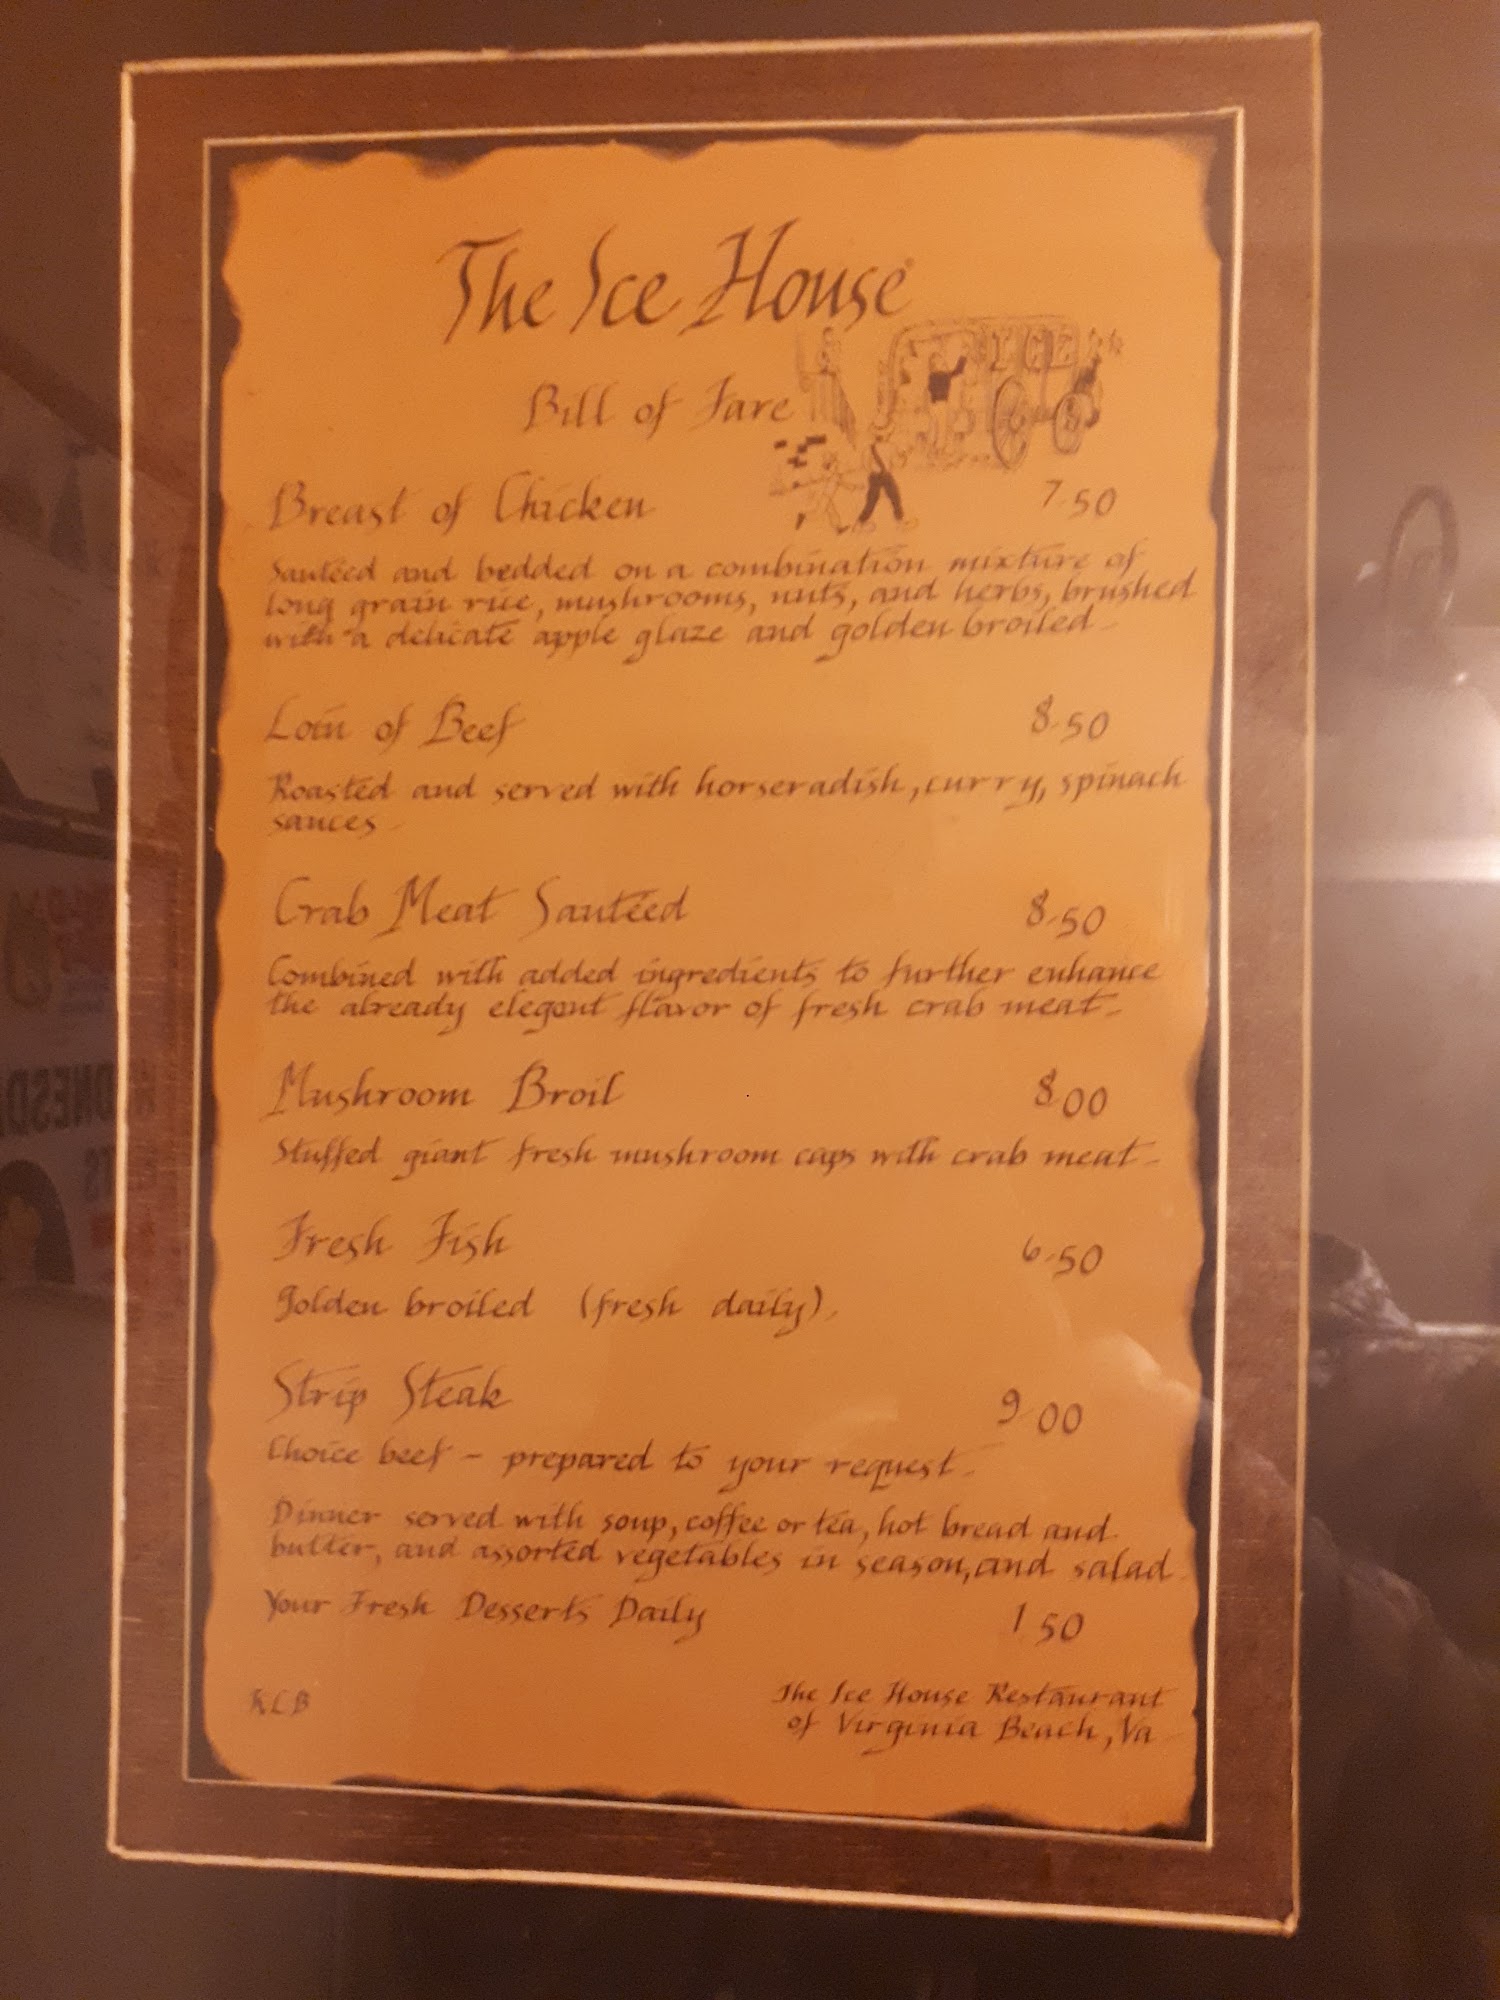 The Ice House
ICE
Bill of Fare
Breast of Chicken 7.50
Sautéed and bedded on a combination mixture of
long grain rice, mushrooms, nuts, and herbs, brushed
with a delicate apple glaze and golden broiled.
Loin of Beef 8.50
Roasted and served with horseradish, curry, spinach
sauces.
Crab Meat Sautéed 8.50
Combined with added ingredients to further enhance
the already elegant flavor of fresh crab meat.
Mushroom Broil 8.00
Stuffed giant fresh mushroom caps with crab meat.
Fresh Fish 6.50
Golden broiled (fresh daily).
Strip Steak 9 00
Choice beef - prepared to your request.
Dinner served with soup, coffee or tea, hot bread and
butter, and assorted vegetables in season, and salad.
Your Fresh Desserts Daily 1 50
The Ice House Restaurant
of Virginia Beach, Va